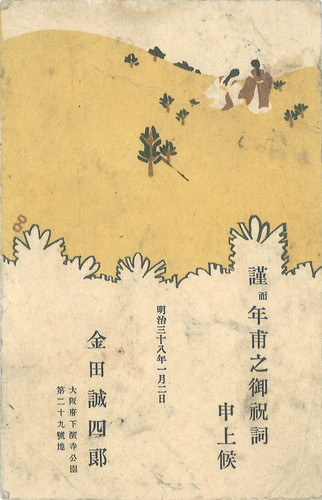 謹而年甫之御祝詞
申上候
明治三十八年一月二日
金田誠四郎
大阪府下濱寺公園
第二十九號地